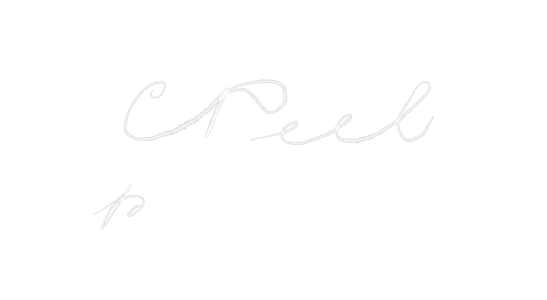 C Peel
p